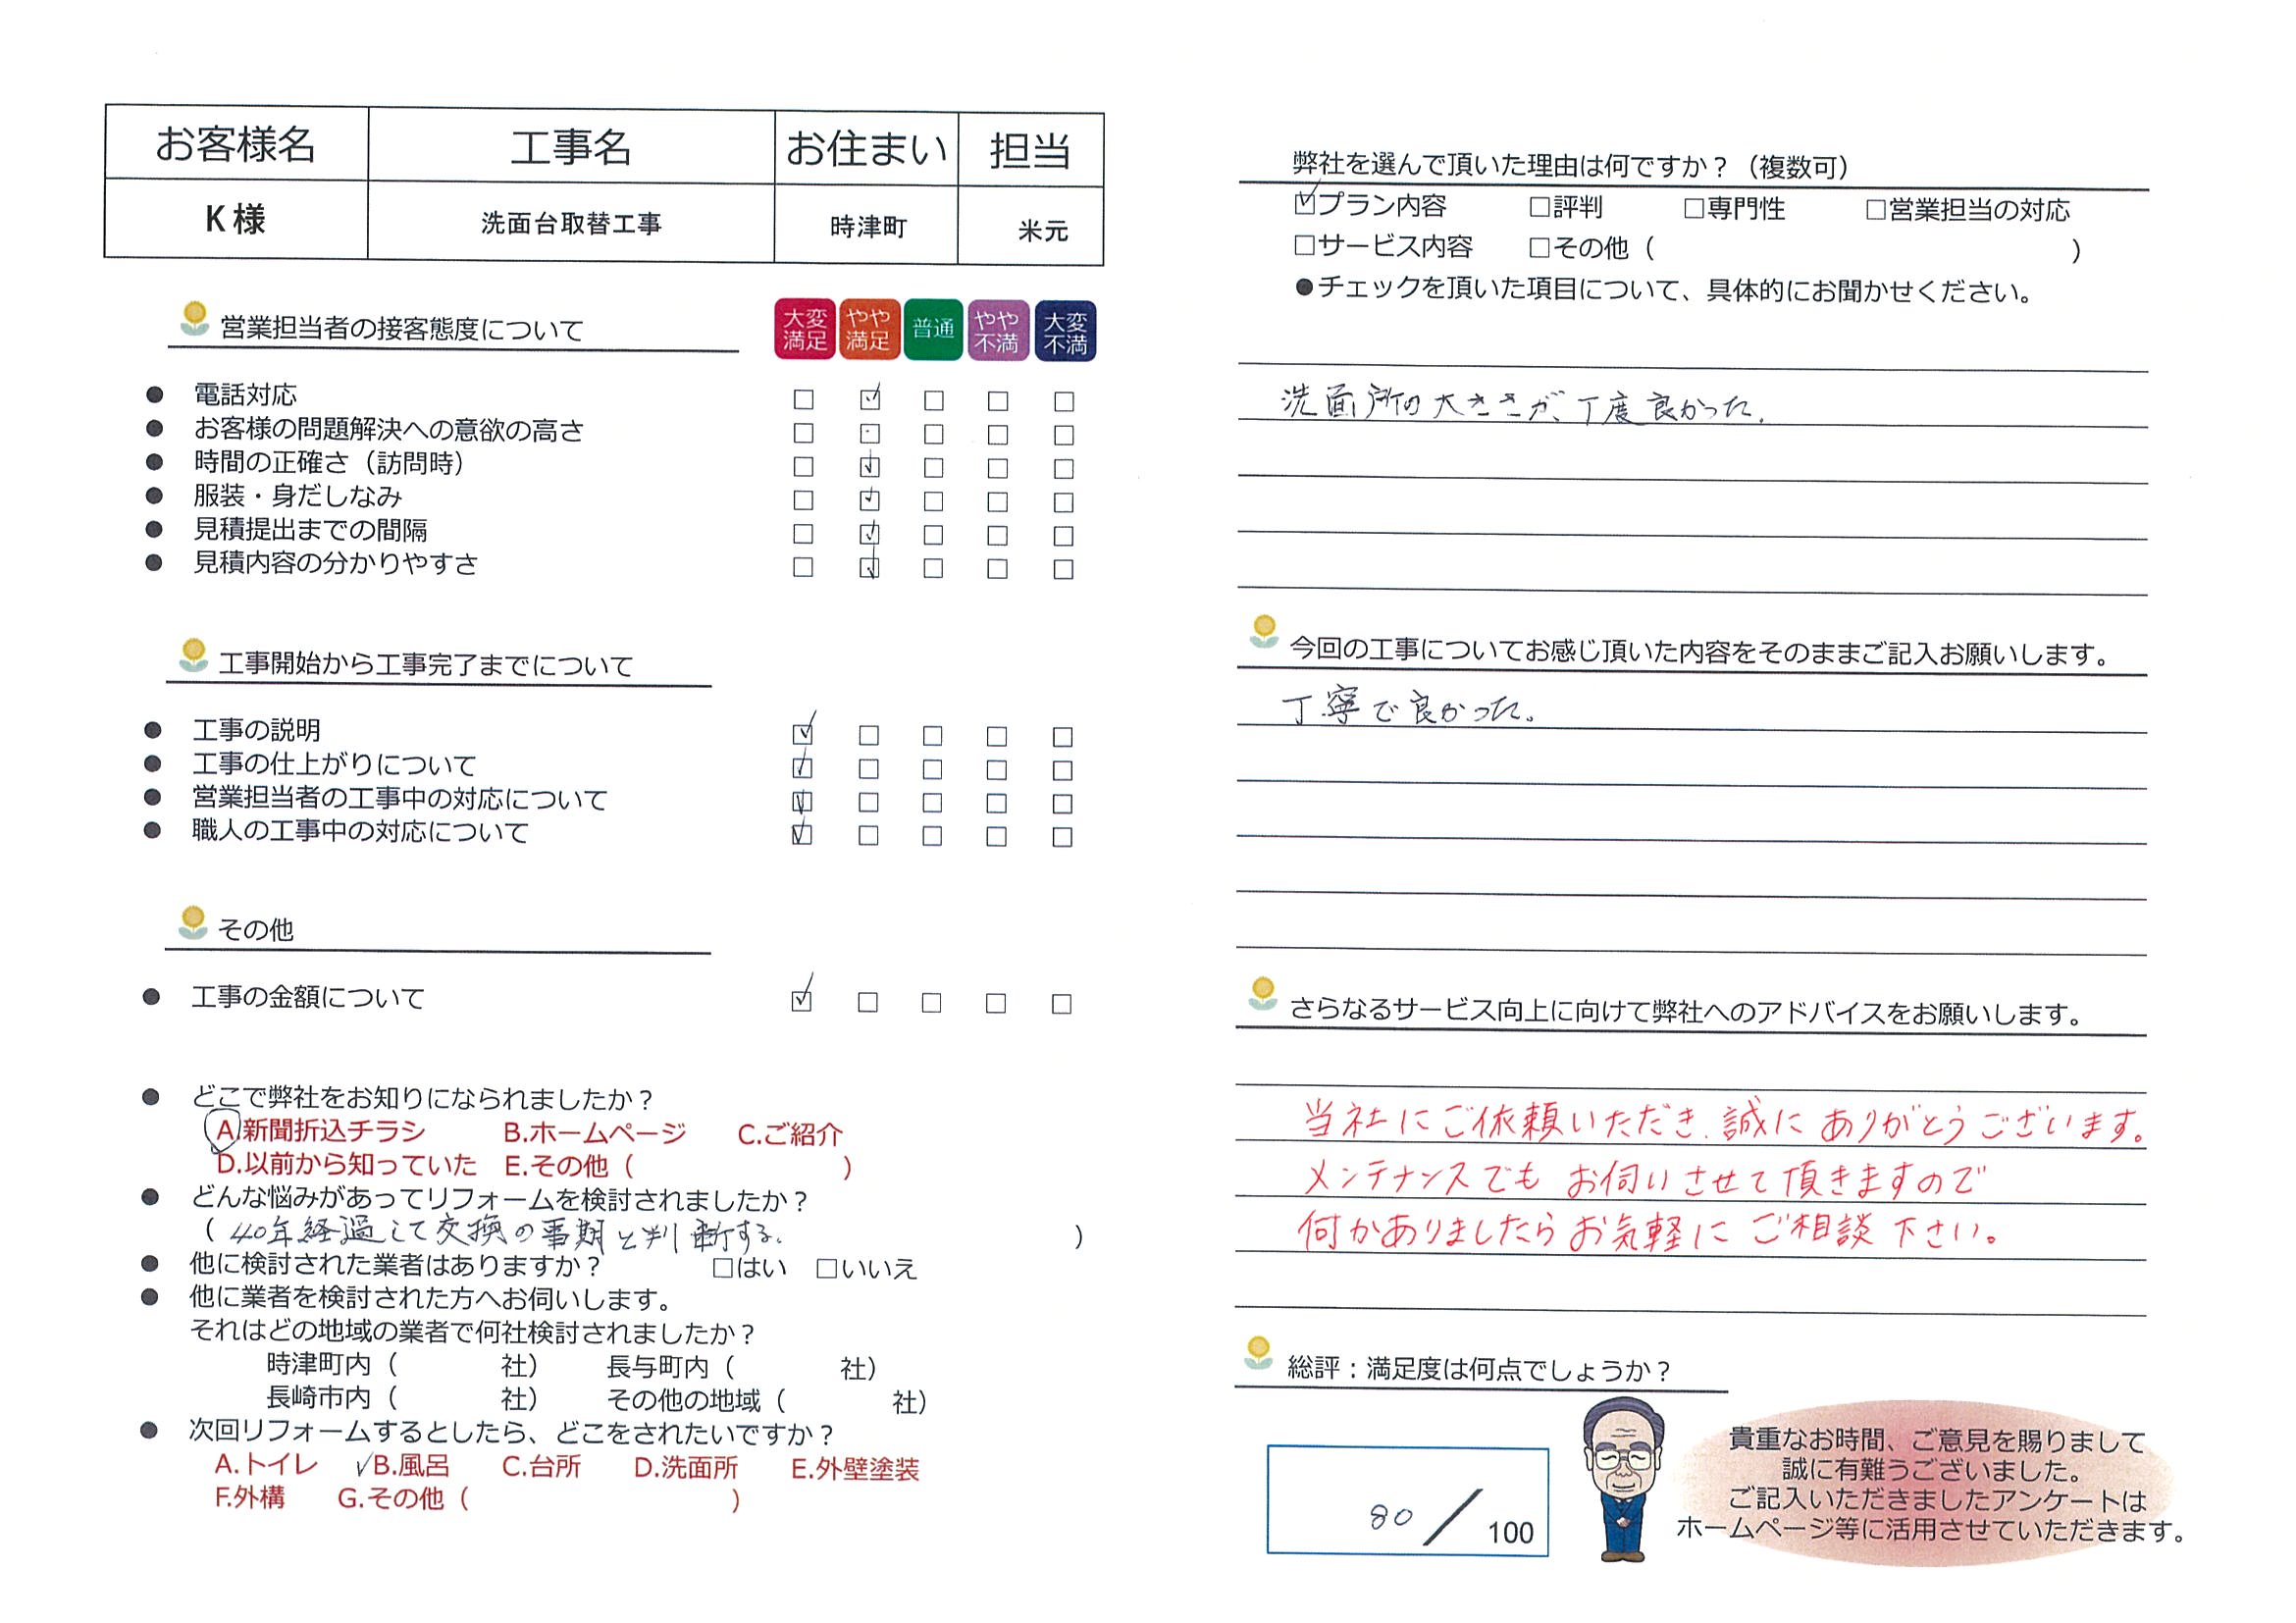 お客様名 工事名 お住まい 担当
K様 洗面台取替工事 時津町 米元
営業担当者の接客態度について 大変満足 やや満足 普通 やや不満 大変不満
● 電話対応 □ ☑ □ □ □
● お客様の問題解決への意欲の高さ □ ☑ □ □ □
● 時間の正確さ（訪問時） □ ☑ □ □ □
● 服装・身だしなみ □ ☑ □ □ □
● 見積提出までの間隔 □ ☑ □ □ □
● 見積内容の分かりやすさ □ ☑ □ □ □
工事開始から工事完了までについて
● 工事の説明 ☑ □ □ □ □
● 工事の仕上がりについて ☑ □ □ □ □
● 営業担当者の工事中の対応について ☑ □ □ □ □
● 職人の工事中の対応について ☑ □ □ □ □
その他
● 工事の金額について ☑ □ □ □ □
● どこで弊社をお知りになられましたか？
A.新聞折込チラシ B.ホームページ C.ご紹介
D.以前から知っていた E.その他（ ）
● どんな悩みがあってリフォームを検討されましたか？
（40年経過して交換の事期と判断する。）
● 他に検討された業者はありますか？ □はい □いいえ
● 他に業者を検討された方へお伺いします。
それはどの地域の業者で何社検討されましたか？
時津町内（ 社） 長与町内（ 社）
長崎市内（ 社） その他の地域（ 社）
● 次回リフォームするとしたら、どこをされたいですか？
A.トイレ ✓B.風呂 C.台所 D.洗面所 E.外壁塗装
F.外構 G.その他（ ）
弊社を選んで頂いた理由は何ですか？（複数可）
☑プラン内容 □評判 □専門性 □営業担当の対応
□サービス内容 □その他（ ）
●チェックを頂いた項目について、具体的にお聞かせください。
洗面所の大きさが、丁度良かった。
今回の工事についてお感じ頂いた内容をそのままご記入お願いします。
丁寧で良かった。
さらなるサービス向上に向けて弊社へのアドバイスをお願いします。
当社にご依頼いただき、誠にありがとうございます。
メンテナンスでもお伺いさせて頂きますので
何かありましたらお気軽にご相談下さい。
総評：満足度は何点でしょうか？
80／100
貴重なお時間、ご意見を賜りまして
誠に有難うございました。
ご記入いただきましたアンケートは
ホームページ等に活用させていただきます。